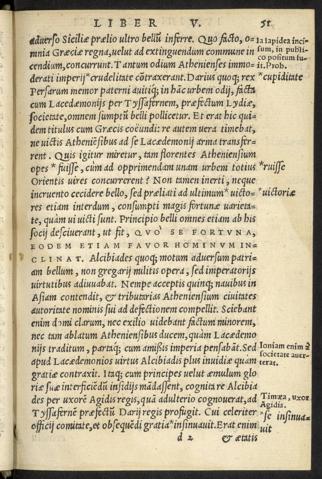 LIBER V. 51
aduerso Siciliæ prælio ultro bellũ inferre. Quo facto, o-
mnia Græciæ regna, uelut ad extinguendum commune in
cendium, concurrunt. Tantum odium Athenienses immo-
derati imperij * crudelitate cõtraxerant. Darius quoq; rex
Persarum memor paterni auitiq; in hãc urbem odij, facta
cum Lacedæmonijs per Tyssafernem, præfectum Lydiæ,
societate, omnem sumptũ belli pollicetur. Et erat hic qui-
dem titulus cum Græcis coëundi: re autem uera timebat,
ne uictis Atheniẽsibus ad se Lacedæmonij arma transfer-
rent. Quis igitur miretur, tam florentes Atheniensium
opes * fuisse, cum ad opprimendam unam urbem totius
Orientis uires concurrerent? Non tamen inerti, neque
incruento cecidere bello, sed præliati ad ultimum * uicto-
res etiam interdum, consumpti magis fortunæ varieta-
te, quàm ui uicti sunt. Principio belli omnes etiam ab his
socij desciuerant, ut fit, QVÒ SE FORTVNA,
EODEM ETIAM FAVOR HOMINVM IN-
CLINAT. Alcibiades quoq; motum aduersum patri-
am bellum, non gregarij militis opera, sed imperatorijs
uirtutibus adiuuabat. Nempe acceptis quinq; nauibus in
Asiam contendit, & tributarias Atheniensium ciuitates
autoritate nominis sui ad defectionem compellit. Sciebant
enim domi clarum, nec exilio uidebant factum minorem,
nec tam ablatum Atheniensibus ducem, quàm Lacedæmo
nijs traditum, partaq; cum amissis imperia pensabãt. Sed
apud Lacedæmonios uirtus Alcibiadis plus inuidiæ quàm
gratiæ contraxit. Itaq; cum principes uelut æmulum glo
riæ suæ interficiẽdũ insidijs mãdassent, cognita re Alcibia
des per uxorẽ Agidis regis, quã adulterio cognouerat, ad
Tyssafernẽ præfectũ Darij regis profugit. Cui celeriter
officij comitate, et obsequẽdi gratia * insinuauit. Erat enim
d 2 & ætatis
la lapidea inci-
sum, in publi-
co positum fu-
it. Prob.
* cupiditate
* ruisse
* uictoriæ
Ioniam enim à
societate auer-
terat.
Timæa, uxor
Agidis.
* se insinua-
uit